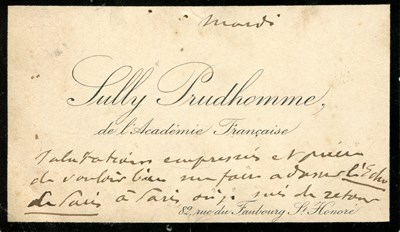 mardi
Sully Prudhomme,
de l'Académie Française
Salutations empressées et prière
de vouloir bien me faire adresser
de Paris à Paris où je suis de retour
82, rue du Faubourg St. Honoré